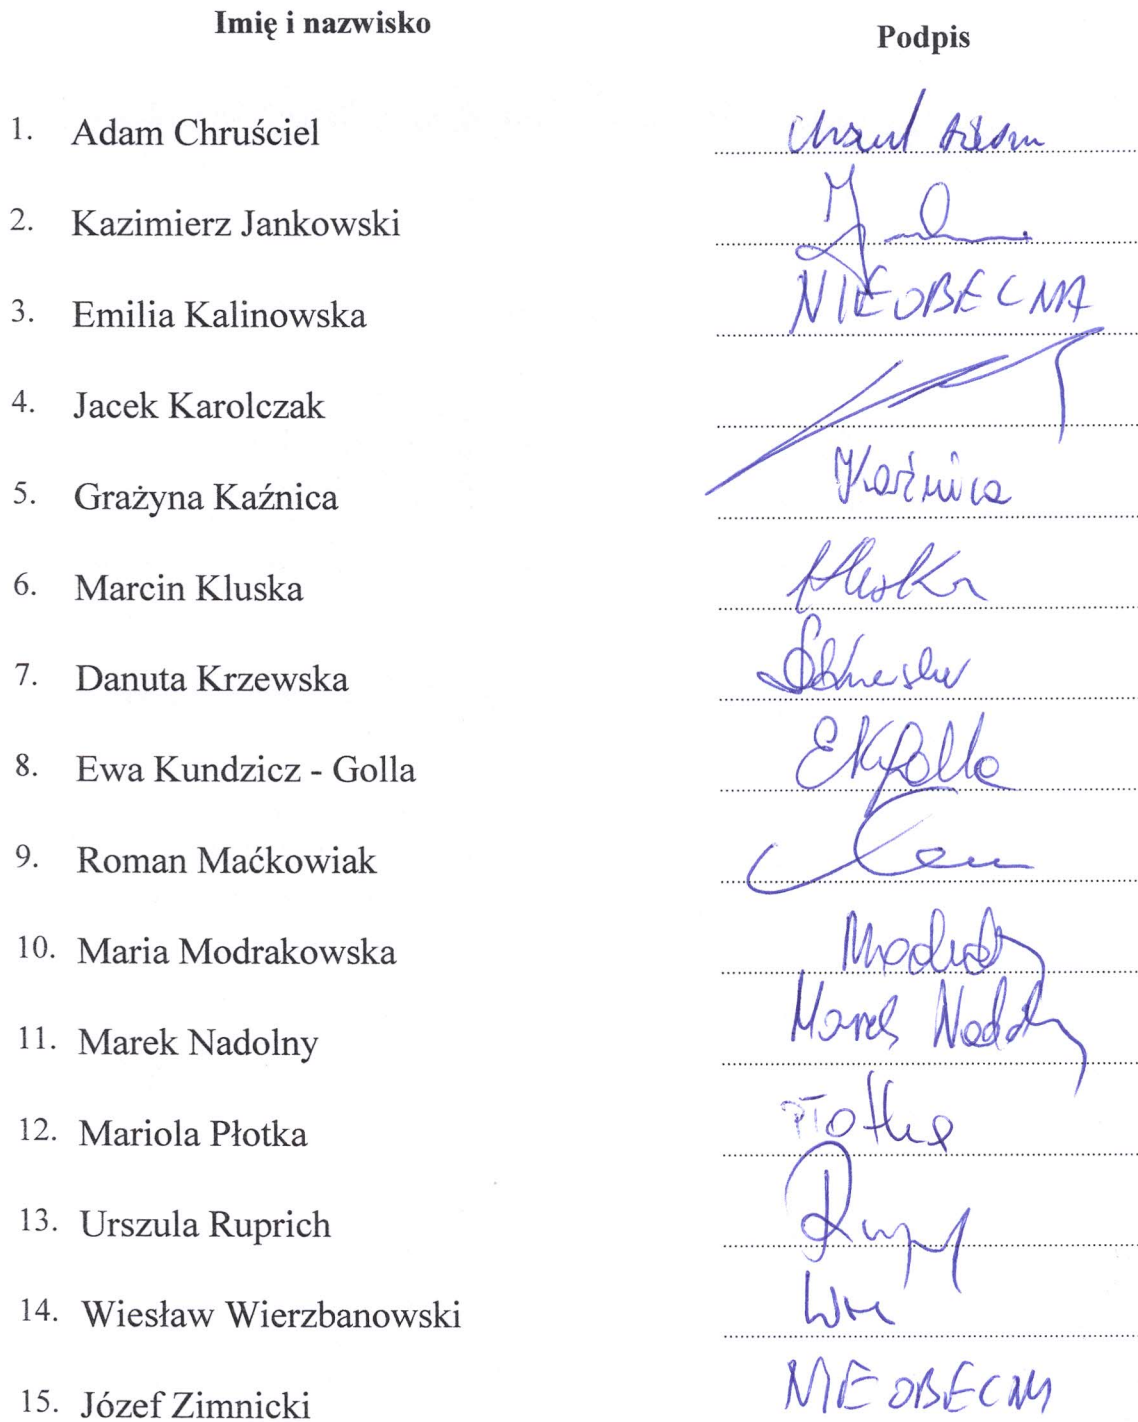 Imię i nazwisko Podpis
1. Adam Chruściel
2. Kazimierz Jankowski
3. Emilia Kalinowska NIEOBECNA
4. Jacek Karolczak
5. Grażyna Kaźnica Kaźnica
6. Marcin Kluska Kluska
7. Danuta Krzewska
8. Ewa Kundzicz - Golla EKGolla
9. Roman Maćkowiak
10. Maria Modrakowska
11. Marek Nadolny Marek
12. Mariola Płotka Płotka
13. Urszula Ruprich
14. Wiesław Wierzbanowski
15. Józef Zimnicki NIEOBECNY